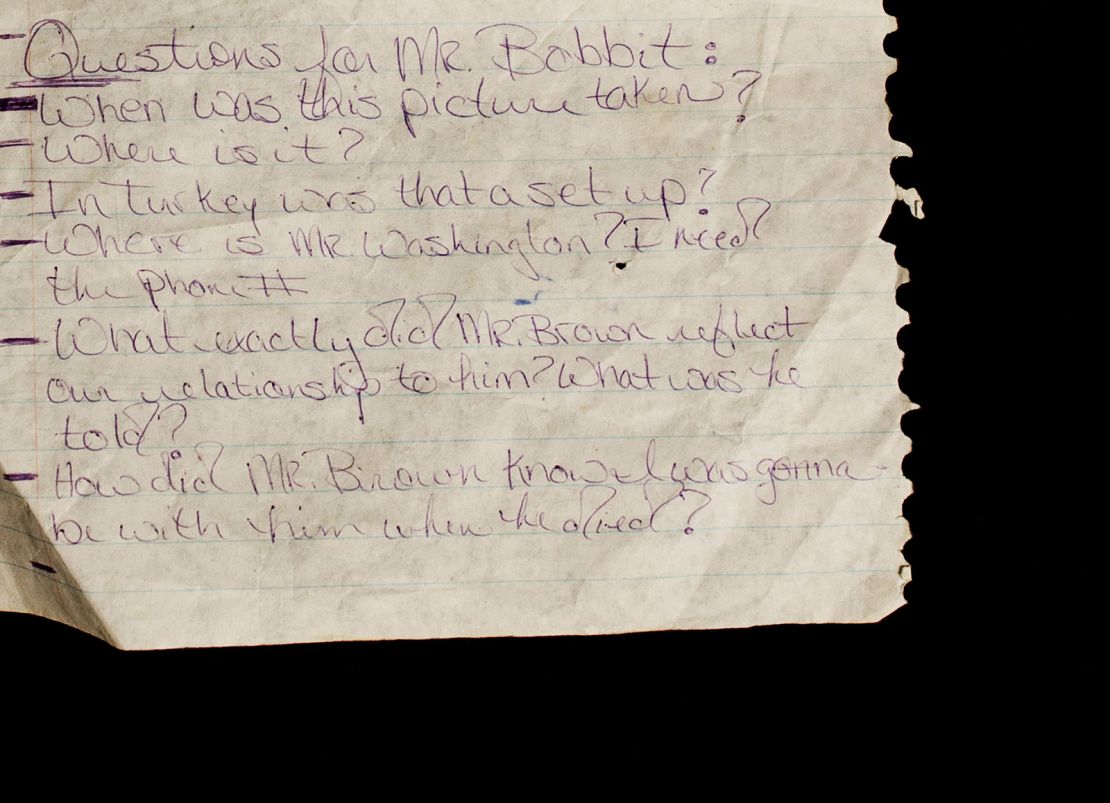 - Questions for Mr. Bobbit:
- When was this picture taken?
- Where is it?
- In Turkey was that a set up?
- Where is Mr. Washington? I need
the phone #
- What exactly did Mr. Brown reflect
our relationship to him? What was he
told?
- How did Mr. Brown know I was gonna
be with him when he died?
-